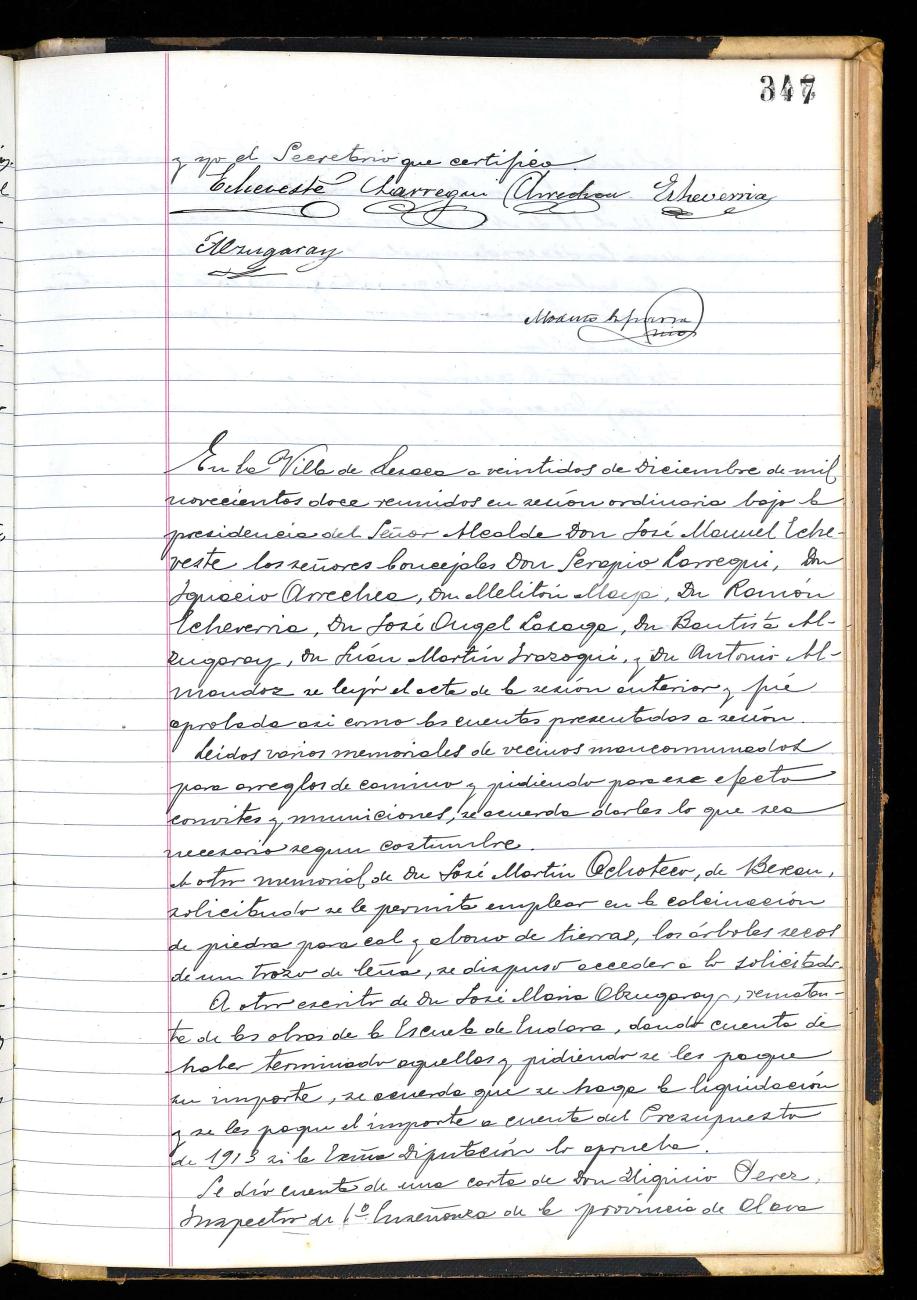 347
y yo el Secretario que certifico
Echeveste Larregui Arrechea Echeverria
Alzugaray
Modesto Esparza
En la Villa de Lesaca a veintidos de Diciembre de mil
novecientos doce reunidos en sesión ordinaria bajo la
presidencia del Señor Alcalde Don José Manuel Eche-
veste los señores Concejales Don Serapio Larregui, Don
Ignacio Arrechea, Dn Melitón Maya, Dn Ramón
Echeverria, Dn José Angel Lasaga, Dn Bautista Al-
zugaray, Dn Juán Martín Irazoqui, y Dn Antonio Al-
mandoz se leyó el acta de la sesión anterior y fué
aprobada asi como las cuentas presentadas a sesión.
Leidos varios memoriales de vecinos mancomunados
para arreglos de camino y pidiendo para ese efecto
convites y municiones, se acuerda darles lo que sea
necesario segun costumbre.
A otro memorial de Dn José Martín Ochoteco, de Berzau,
solicitando se le permita emplear en la calcinación
de piedra para cal y abono de tierras, los árboles secos
de un trozo de leña, se dispuso acceder a lo solicitado.
A otro escrito de Dn José Maria Alzugaray, rematan-
te de las obras de la Escuela de Endara, dando cuenta de
haber terminado aquellas y pidiendo se les pague
su importe, se acuerda que se haga la liquidación
y se les pague el importe a cuenta del Presupuesto
de 1913 si la Exma Diputación lo aprueba.
Se dió cuenta de una carta de Don Higinio Perez,
Inspector de 1ª Enseñanza de la provincia de Alava